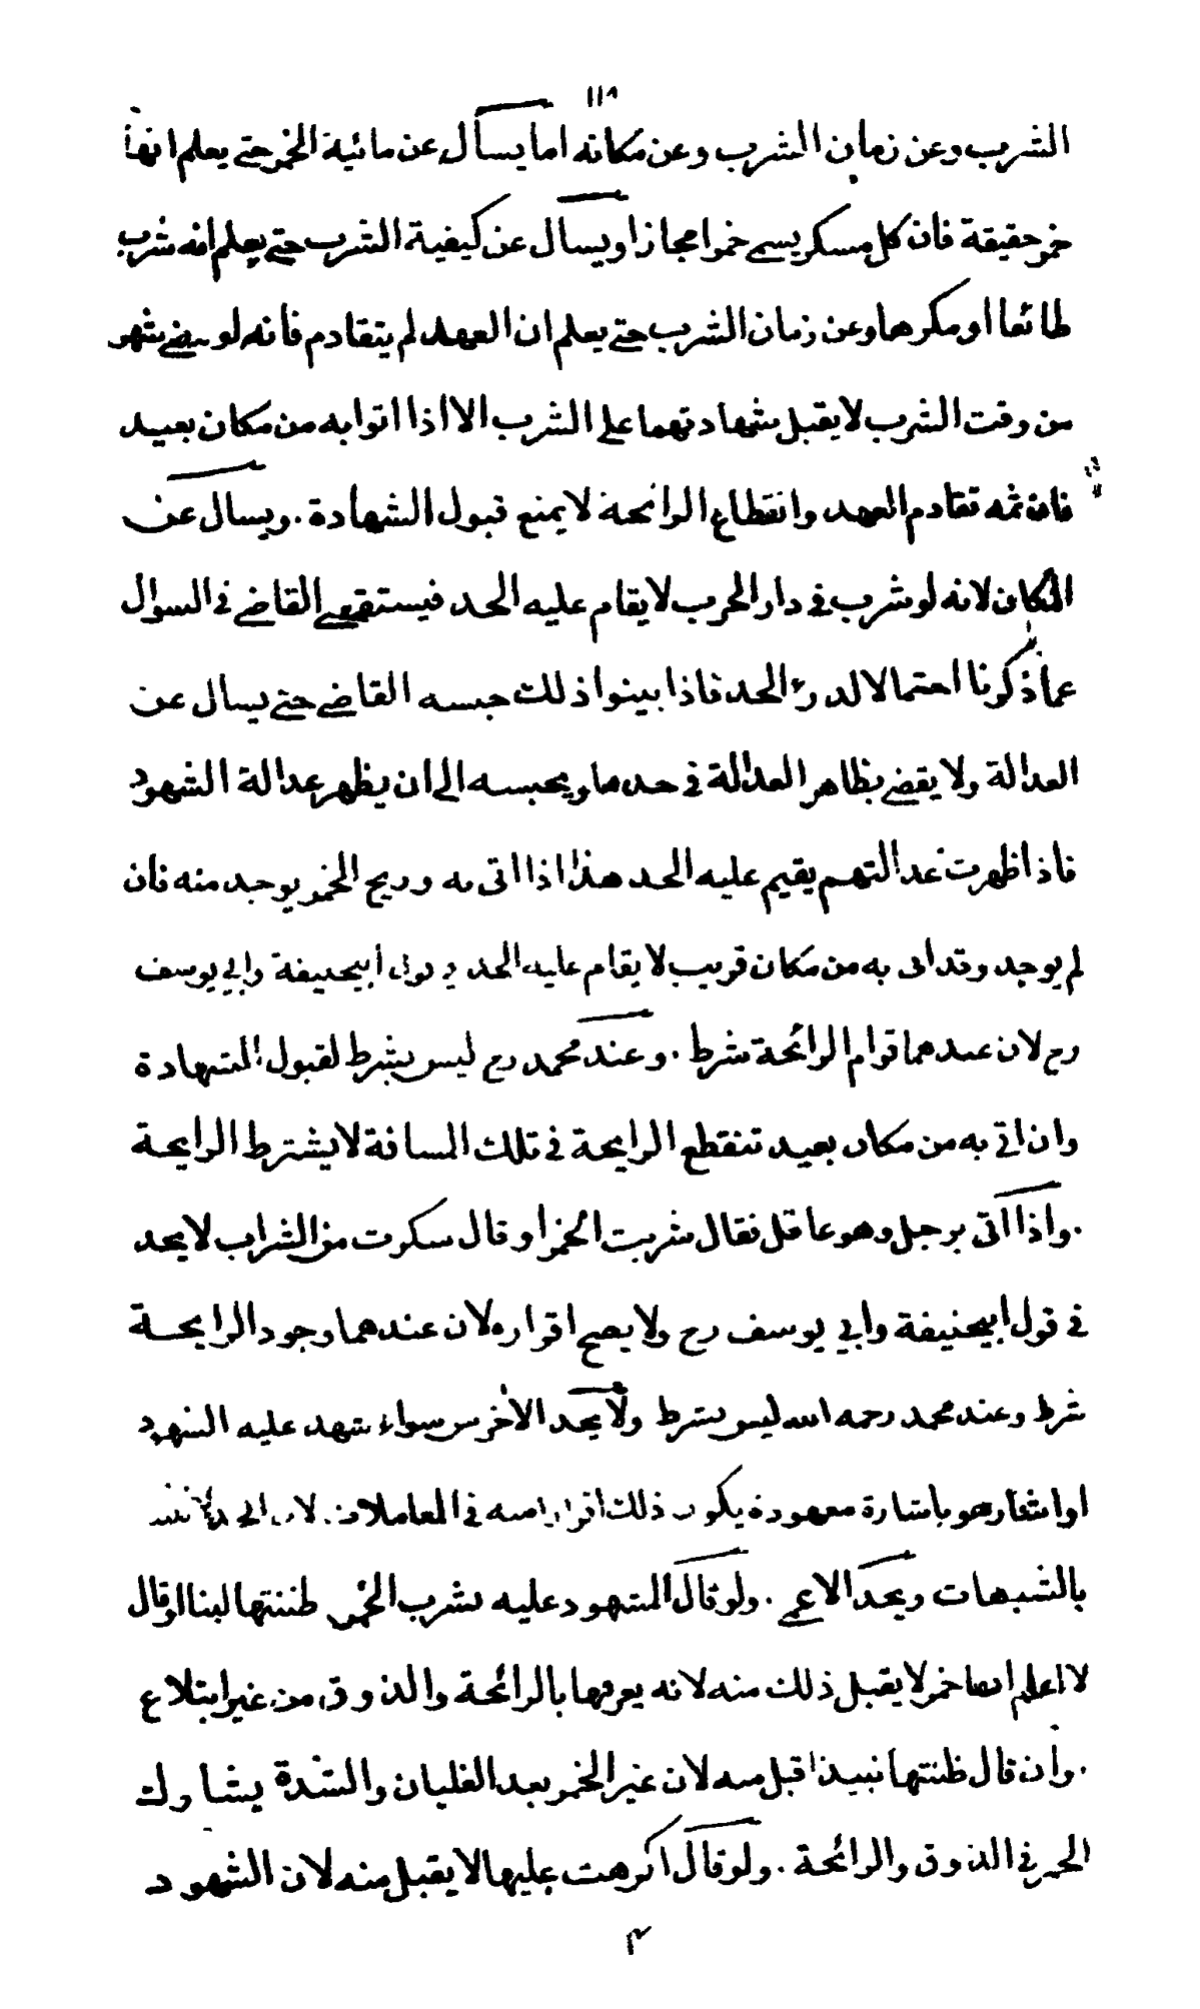 ١١٨
الشرب وعن زمان الشرب وعن مكانه اما يسأل عن مائية الخمر حتى يعلم انها
خمر حقيقة فان كل مسكر يسمى خمرا مجازا ويسأل عن كيفية الشرب حتى يعلم انه شرب
طائعا او مكرها وعن زمان الشرب حتى يعلم ان العهد لم يتقادم فانه لو مضى شهر
من وقت الشرب لا يقبل شهادتهما على الشرب الا اذا اتوا به من مكان بعيد
فان ثمه تقادم العهد وانقطاع الرائحة لا يمنع قبول الشهادة . ويسال عن
المكان لانه لو شرب في دار الحرب لا يقام عليه الحد فيستقصى القاضي في السوال
عما ذكرنا احتمالا لدرء الحد فاذا بينوا ذلك حبسه القاضي حتى يسال عن
العدالة ولا يقضي بظاهر العدالة في حد ما ويحبسه الى ان يظهر عدالة الشهود
فاذا ظهرت عدالتهم يقيم عليه الحد هذا اذا اتى به وريح الخمر يوجد منه فان
لم يوجد وقد اتى به من مكان قريب لا يقام عليه الحد في قول ابيحنيفة وابي يوسف
رح لان عندهما قوام الرائحة شرط . وعند محمد رح ليس بشرط لقبول الشهادة
وان اتي به من مكان بعيد تنقطع الرايحة في تلك المسافة لا يشترط الرايحة
. واذا اتى برجل وهو عاقل فقال شربت الخمر او قال سكرت من الشراب لا يحد
في قول ابيحنيفة وابي يوسف رح ولا يصح اقراره لان عندهما وجود الرايحة
شرط وعند محمد رحمه الله ليس بشرط ولا يحد الاخرس سواء شهد عليه الشهود
او اشار هو باشارة معهودة يكون ذلك اقرارا منه في المعاملات لان الحد لا
بالشبهات ويحد الاعمى . ولو قال المشهود عليه بشرب الخمر ظننتها لبنا او قال
لا اعلم انها خمر لا يقبل ذلك منه لانه يعرفها بالرائحة والذوق من غير ابتلاع
. وان قال ظننتها نبيذا قبل منه لان غير الخمر بعد الغليان والشدة يشارك
الخمر في الذوق والرائحة . ولو قال اكرهت عليها لا يقبل منه لان الشهود